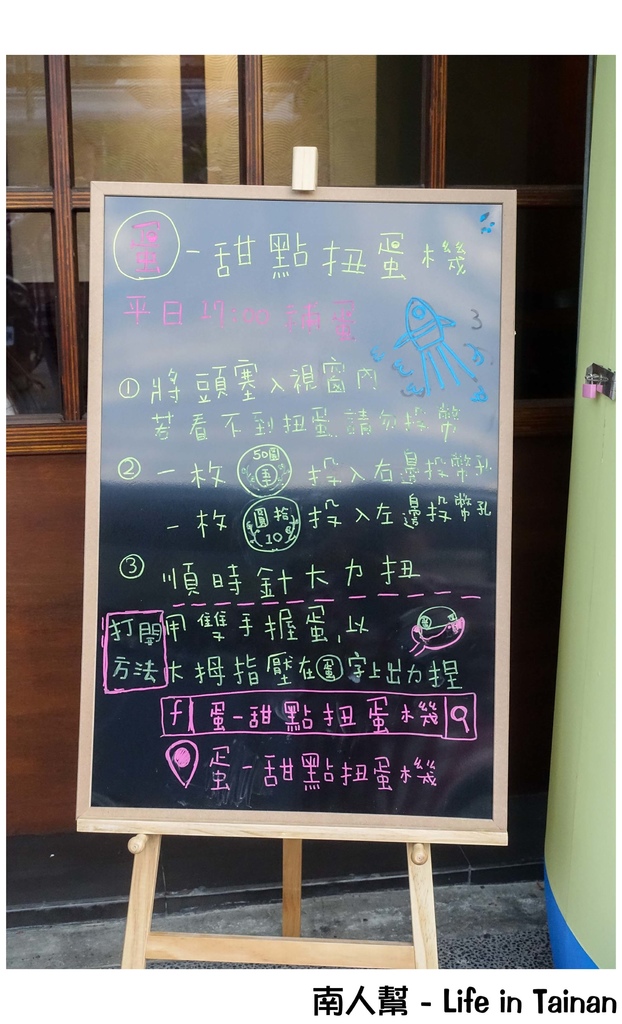 蛋-甜點扭蛋機
平日 17:00 補蛋
① 將頭塞入視窗內
若看不到扭蛋請勿投幣
② 一枚 50圓 五 投入右邊投幣孔
一枚 圓拾 10 投入左邊投幣孔
③ 順時針大力扭
打開方法 用雙手握蛋,以
大拇指壓在蛋字上出力捏
f 蛋-甜點扭蛋機
蛋-甜點扭蛋機
南人幫 - Life in Tainan